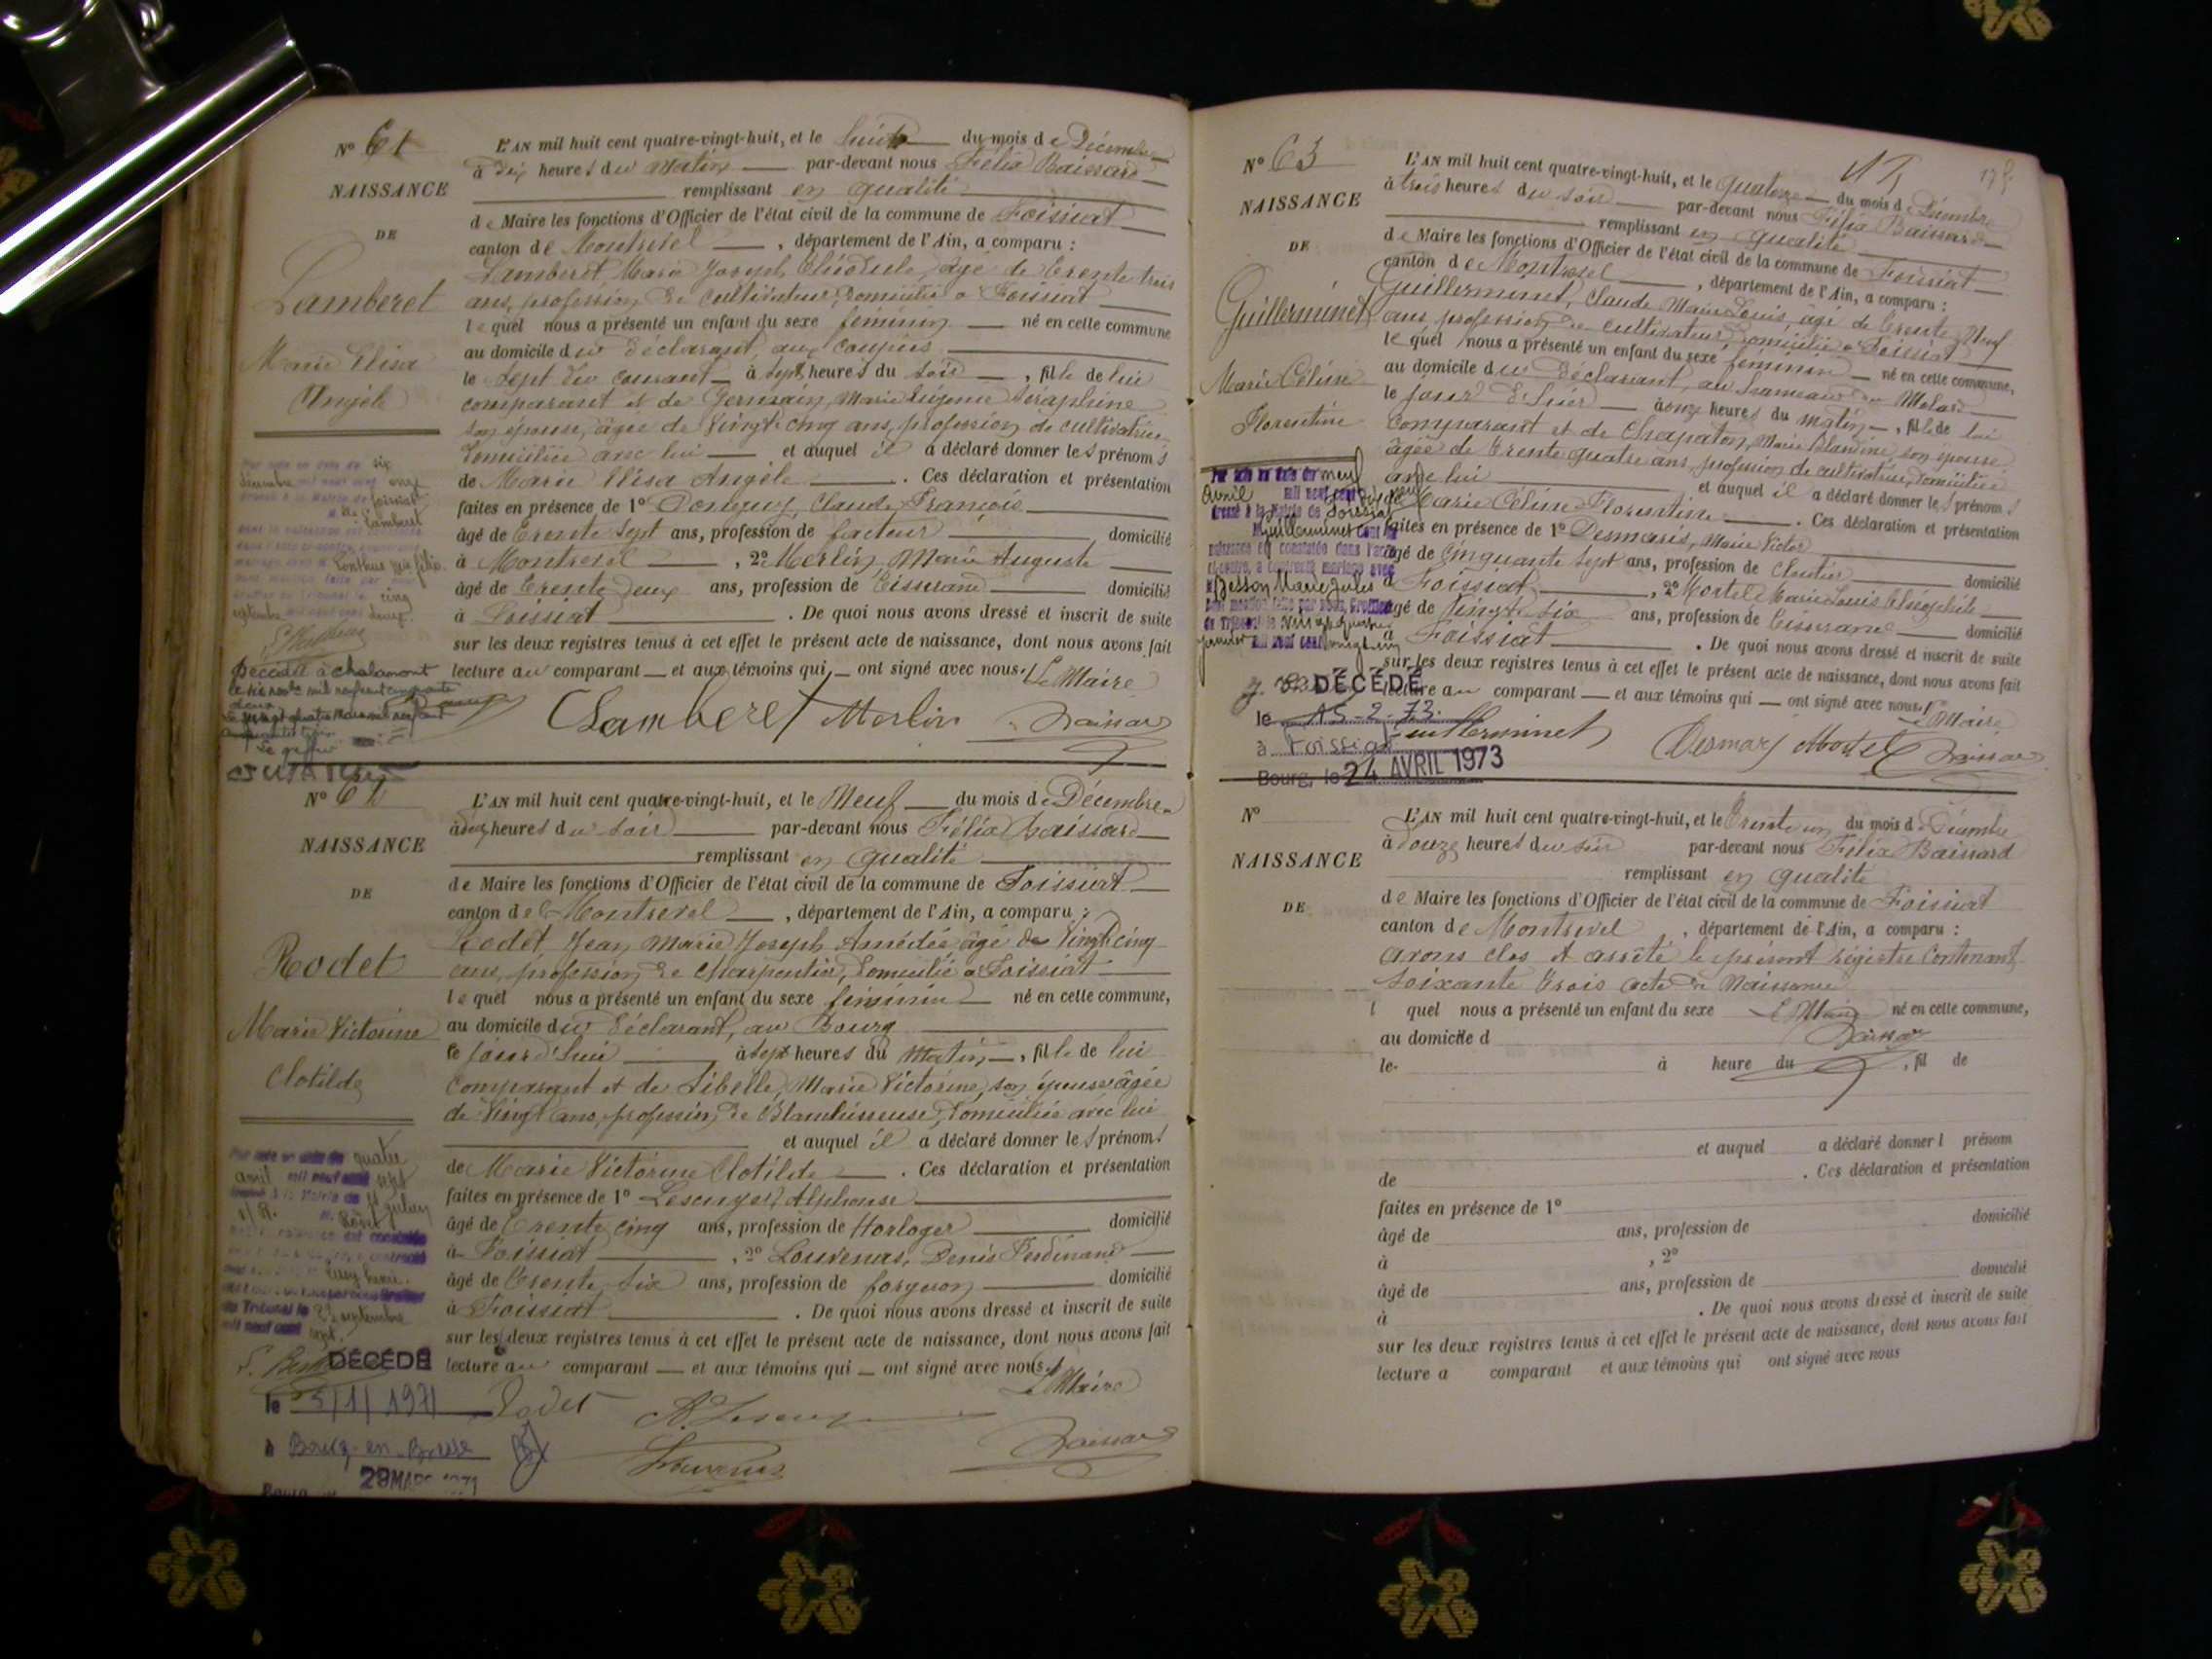 N° 61
NAISSANCE
DE
Lamberet
Marie Elisa
Angèle
L'AN mil huit cent quatre-vingt-huit, et le huit du mois de Décembre
à dix heures du matin par-devant nous Félix Baissard
remplissant en qualité
de Maire les fonctions d'Officier de l'état civil de la commune de Foissiat
canton de Montrevel, département de l'Ain, a comparu :
Lamberet, Marie Joseph, âgé de trente trois
ans, profession de cultivateur, domicilié à Foissiat
lequel nous a présenté un enfant du sexe féminin né en cette commune
au domicile du déclarant, aux
le sept du courant à sept heures du soir, fille de lui
comparant et de Germain, Marie Eugénie Séraphine
son épouse, âgée de vingt cinq ans, profession de cultivatrice
domiciliée avec lui et auquel il a déclaré donner les prénoms
de Marie Elisa Angèle. Ces déclaration et présentation
faites en présence de 1° Claude François
âgé de trente sept ans, profession de facteur domicilié
à Montrevel, 2° Merlin, Marie Auguste
âgé de trente deux ans, profession de tisserand domicilié
à Foissiat. De quoi nous avons dressé et inscrit de suite
sur les deux registres tenus à cet effet le présent acte de naissance, dont nous avons fait
lecture au comparant et aux témoins qui ont signé avec nous. Le Maire
Lamberet Merlin Baissard
six
décembre mil neuf cent onze
Foissiat
Lamberet
cinq
septembre
Décédée à Chalamont
N° 62
NAISSANCE
DE
Rodet
Marie Victorine
Clotilde
L'AN mil huit cent quatre-vingt-huit, et le neuf du mois de Décembre
heures du soir par-devant nous Félix Baissard
remplissant en qualité
de Maire les fonctions d'Officier de l'état civil de la commune de Foissiat
canton de Montrevel, département de l'Ain, a comparu :
Rodet, Jean Marie Joseph Amédée âgé de vingt cinq
ans, profession de charpentier, domicilié à Foissiat
lequel nous a présenté un enfant du sexe féminin né en cette commune,
au domicile du déclarant, au Bourg
le jour d'hui à sept heures du matin, fille de lui
comparant et de Libelle, Marie Victorine, son épouse âgée
de vingt ans, profession de Blanchisseuse, domiciliée avec lui
et auquel il a déclaré donner les prénoms
de Marie Victorine Clotilde. Ces déclaration et présentation
faites en présence de 1° Lescuyer, Alphonse
âgé de trente cinq ans, profession de Horloger domicilié
à Foissiat, 2° Louvenas, Denis Ferdinand
âgé de trente six ans, profession de forgeron domicilié
à Foissiat. De quoi nous avons dressé et inscrit de suite
sur les deux registres tenus à cet effet le présent acte de naissance, dont nous avons fait
lecture au comparant et aux témoins qui ont signé avec nous. Le Maire
Rodet
Baissard
quatre
avril mil neuf cent sept
St Julien
s/R. Rodet
23 septembre
mil neuf cent sept
DÉCÉDÉ
le 5/1/1971
à Bourg-en-Bresse
29 MARS 1971
N° 63
NAISSANCE
DE
Guillerminet
Marie Céline
Florentine
L'AN mil huit cent quatre-vingt-huit, et le quatorze du mois d Décembre
à trois heures du soir par-devant nous Félix Baissard
remplissant en qualité
de Maire les fonctions d'Officier de l'état civil de la commune de Foissiat
canton de Montrevel, département de l'Ain, a comparu :
Guillerminet, Claude Marie Louis âgé de trente neuf
ans, profession de cultivateur domicilié à Foissiat
lequel nous a présenté un enfant du sexe féminin né en cette commune,
au domicile du déclarant, au hameau du
le jour d'hier à onze heures du matin, fille de lui
comparant et de Chapaton, Marie Blandine, son épouse
âgée de trente quatre ans, profession de cultivatrice, domiciliée
avec lui et auquel il a déclaré donner les prénoms
de Marie Céline Florentine. Ces déclaration et présentation
faites en présence de 1° Desmaris, Marie Victor
âgé de cinquante sept ans, profession de domicilié
à Foissiat, 2° Mortel Marie Louis Cléophile
âgé de vingt six ans, profession de tisserand domicilié
à Foissiat. De quoi nous avons dressé et inscrit de suite
sur les deux registres tenus à cet effet le présent acte de naissance, dont nous avons fait
lecture au comparant et aux témoins qui ont signé avec nous. Le Maire
Guillerminet Desmaris Mortel Baissard
Par acte en date du neuf
avril mil neuf cent
dressé à la Mairie de Foissiat
Guillerminet dont la
naissance est constatée dans l'acte
ci-contre, a contracté mariage avec
Besson Marie Jules
vingt quatre
janvier mil neuf cent vingt
DÉCÉDÉ
le 15-2-73
à Foissiat
Bourg, le 24 AVRIL 1973
N°
NAISSANCE
DE
L'AN mil huit cent quatre-vingt-huit, et le trente un du mois d Décembre
à douze heures du soir par-devant nous Félix Baissard
remplissant en qualité
de Maire les fonctions d'Officier de l'état civil de la commune de Foissiat
canton de Montrevel, département de l'Ain, a comparu :
avons clos et arrêté le présent régistre contenant
soixante trois acte de Naissance
l quel nous a présenté un enfant du sexe Le Maire né en cette commune,
au domicile d Baissard
le à heure du , fil de
et auquel a déclaré donner l prénom
de . Ces déclaration et présentation
faites en présence de 1°
âgé de ans, profession de domicilié
à , 2°
âgé de ans, profession de domicilié
à . De quoi nous avons dressé et inscrit de suite
sur les deux registres tenus à cet effet le présent acte de naissance, dont nous avons fait
lecture a comparant et aux témoins qui ont signé avec nous